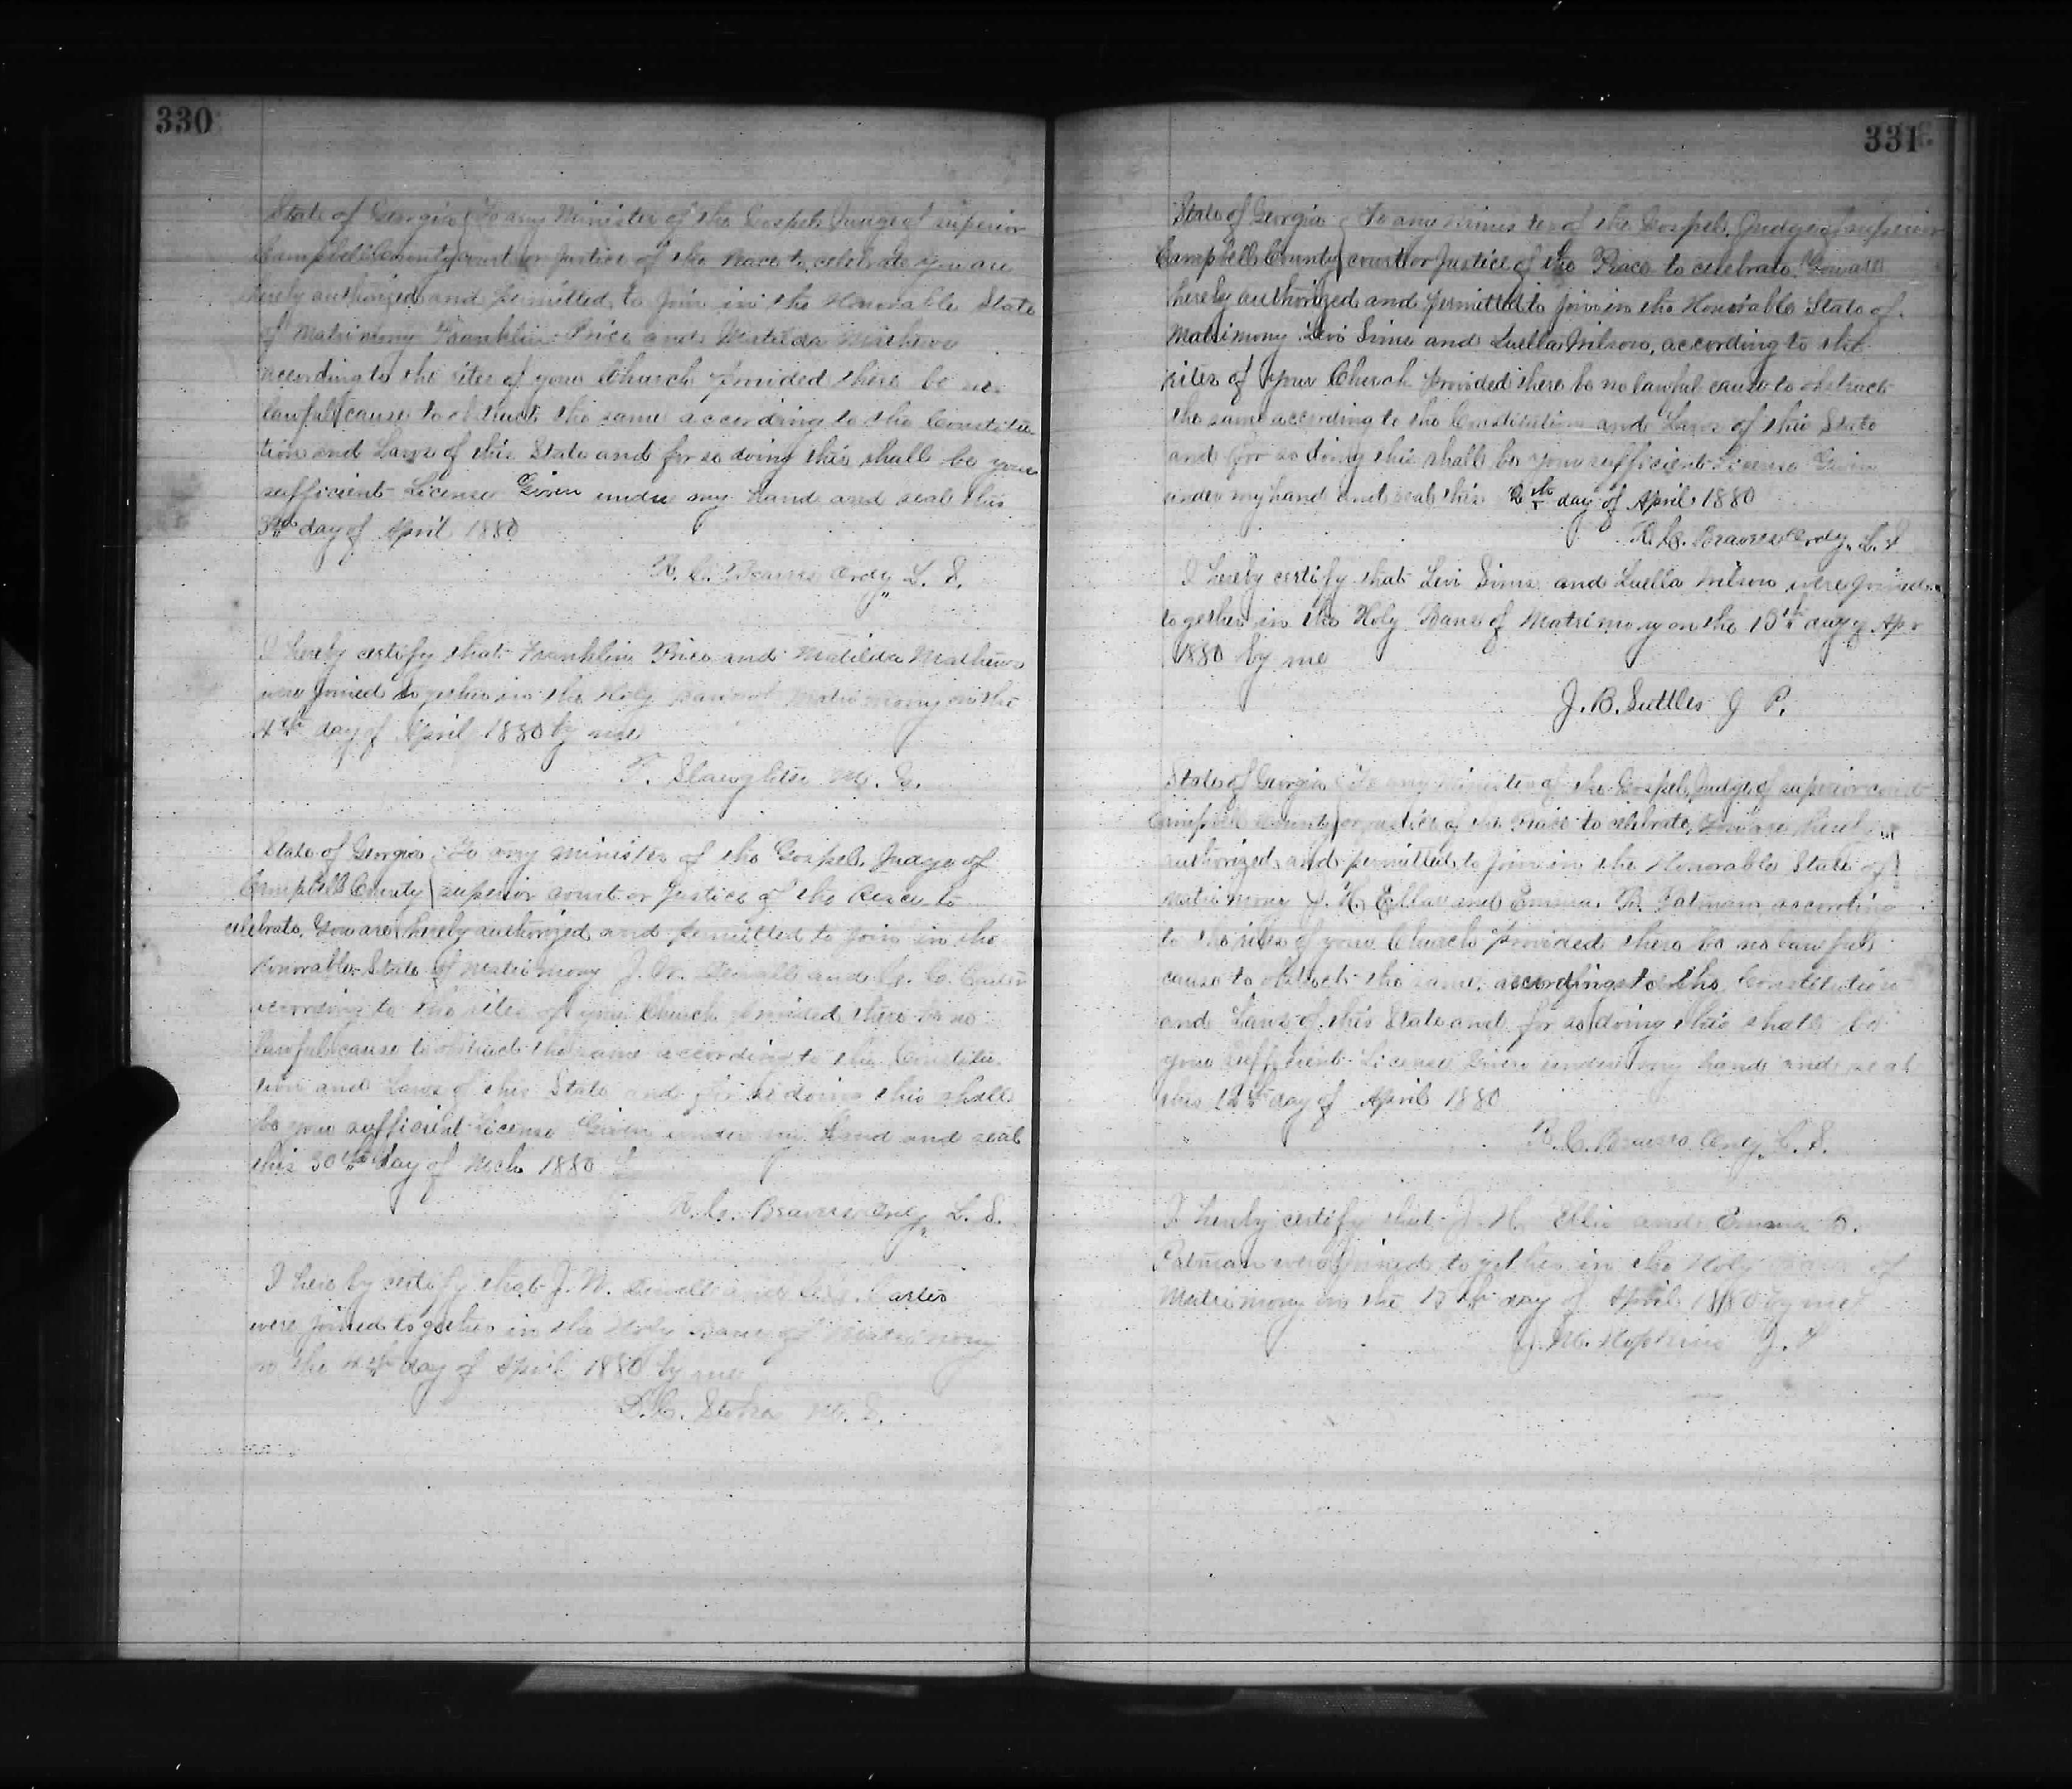 330
State of Georgia To any Minister of the Gospel, Judge of superior
Campbell County court or Justice of the Peace to celebrate You are
hereby authorized and permitted to join in the Honorable State
of Matrimony Franklin Price and Matilda Mathews
according to the rites of your Church provided there be no
lawful cause to obstruct the same according to the Constitu
tion and Laws of this State and for so doing this shall be your
sufficient License Given under my hand and seal this
3rd day of April 1880
R. C. Beavers Ordy L. S.
I hereby certify that Franklin Price and Matilda Mathews
were joined together in the Holy Bans of Matrimony on the
4th day of April 1880 by me
F. Slaughter M. G.
State of Georgia To any Minister of the Gospel, Judge of
Campbell County superior court or Justice of the Peace to
celebrate. You are hereby authorized and permitted to join in the
Honorable State of Matrimony J. W. and C. Carter
according to the rites of your Church provided there be no
lawful cause to obstruct the same according to the Constitu
tion and Laws of this State and for so doing this shall
be your sufficient License Given under my hand and seal
this 30th day of Mch 1880
R. C. Beavers Ordy, L. S.
I here by certify that J. W. and Carter
were joined together in the Holy Bans of Matrimony
on the 4th day of April 1880 by me
331
State of Georgia To any Minister of the Gospel, Judge of superior
Campbell County court or Justice of the Peace to celebrate. You are
hereby authorized and permitted to join in the Honorable State of
Matrimony Levi Sims and Luella Wilson, according to the
rites of your Church provided there be no lawful cause to obstruct
the same according to the Constitution and Laws of this State
and for so doing this shall be your sufficient License Given
under my hand and seal this day of April 1880
R. C. Beavers Ordy, L. S
I hereby certify that Levi Sims and Luella Wilson were joined
together in the Holy Bans of Matrimony on the 15th day of Apr
1880 by me
J. B. Suttles J P.
State of Georgia To any Minister of the Gospel, Judge of superior court
Campbell County or Justice of the Peace to celebrate, You are hereby
authorized and permitted to join in the Honorable State of
Matrimony J. H. Ellis and Emma B. Patman according
to the rites of your Church provided there be no lawful
cause to obstruct the same, according to the Constitution
and Laws of this State and for so doing this shall be
your sufficient License, Given under my hand and seal
this 12th day of April 1880
R. C. Beavers Ordy, L. S.
I hereby certify that J. H. Ellis and Emma B.
Patman were joined together in the Holy Bans of
Matrimony on the 15th day of April 1880 by me
J. M. Hopkins J. P